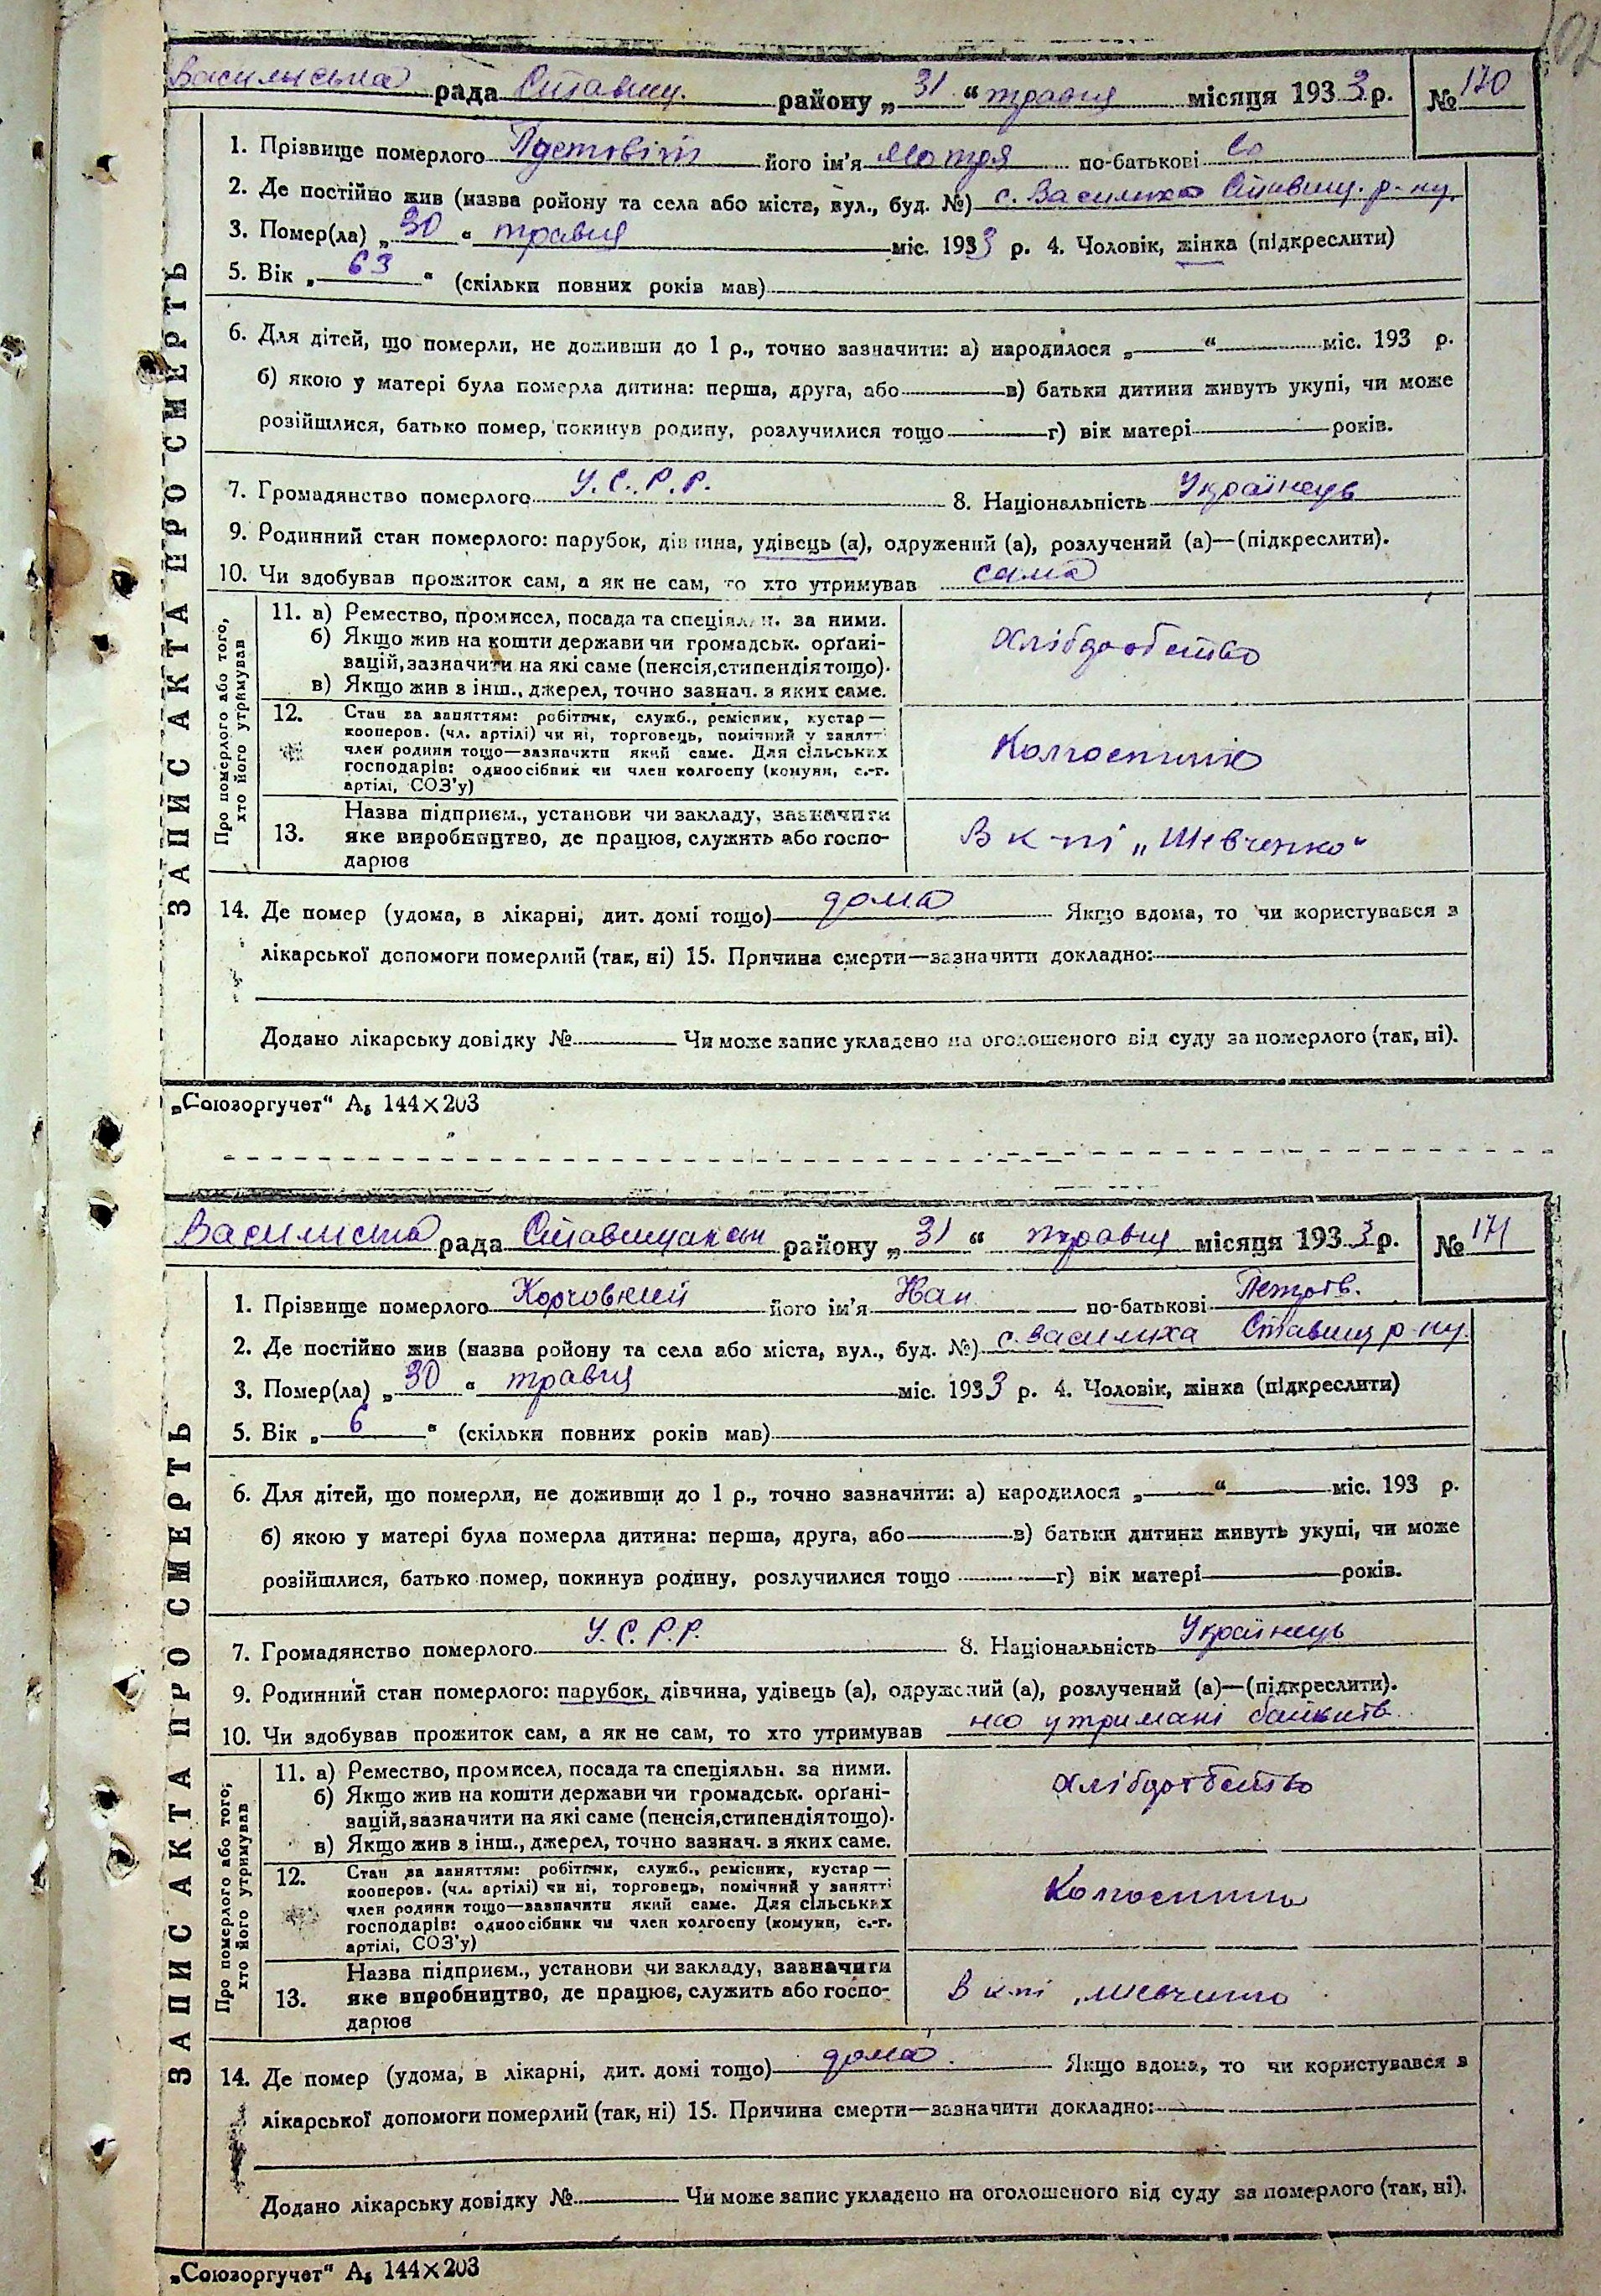 Василиська рада Ставищ. району „31“ травня місяця 1933 р. № 170
1. Прізвище померлого його ім'я Мотря по-батькові
2. Де постійно жив (назва району та села або міста, вул., буд. №) с. Василиха Ставищ. р-ну.
3. Помер(ла) „30“ травня міс. 1933 р. 4. Чоловік, жінка (підкреслити)
5. Вік „63“ (скільки повних років мав)
6. Для дітей, що померли, не доживши до 1 р., точно зазначити: а) народилося „ “ міс. 193 р.
б) якою у матері була померла дитина: перша, друга, або в) батьки дитини живуть укупі, чи може
розійшлися, батько помер, покинув родину, розлучилися тощо г) вік матері років.
7. Громадянство померлого У.С.Р.Р. 8. Національність Українець
9. Родинний стан померлого: парубок, дівчина, удівець (а), одружений (а), розлучений (а)—(підкреслити).
10. Чи здобував прожиток сам, а як не сам, то хто утримував сама
ЗАПИС АКТА ПРО СМЕРТЬ
Про померлого або того,
хто його утримував
11. а) Ремество, промисел, посада та спеціяльн. за ними.
б) Якщо жив на кошти держави чи громадськ. орґані-
зацій, зазначити на які саме (пенсія, стипендія тощо).
в) Якщо жив з інш., джерел, точно зазнач. з яких саме.
Хліборобство
12. Стан за заняттям: робітник, служб., ремісник, кустар—
кооперов. (чл. артілі) чи ні, торговець, помічний у занятті
член родини тощо—зазначити який саме. Для сільських
господарів: одноосібник чи член колгоспу (комуни, с.-г.
артілі, СОЗ'у)
Колгоспниця
13. Назва підприєм., установи чи закладу, зазначити
яке виробництво, де працює, служить або госпо-
дарює
В к-пі „Шевченко“
14. Де помер (удома, в лікарні, дит. домі тощо) дома Якщо вдома, то чи користувався з
лікарської допомоги померлий (так, ні) 15. Причина смерти—зазначити докладно:
Додано лікарську довідку № Чи може запис укладено на оголошеного від суду за померлого (так, ні).
„Союзоргучет“ А₅ 144×203
Василиська рада району „31“ травня місяця 1933 р. № 171
1. Прізвище померлого Корчовний його ім'я Іван по-батькові Петров.
2. Де постійно жив (назва району та села або міста, вул., буд. №) с. Василиха Ставищ р-ну.
3. Помер(ла) „30“ травня міс. 1933 р. 4. Чоловік, жінка (підкреслити)
5. Вік „6“ (скільки повних років мав)
6. Для дітей, що померли, не доживши до 1 р., точно зазначити: а) народилося „ “ міс. 193 р.
б) якою у матері була померла дитина: перша, друга, або в) батьки дитини живуть укупі, чи може
розійшлися, батько помер, покинув родину, розлучилися тощо г) вік матері років.
7. Громадянство померлого У.С.Р.Р. 8. Національність Українець
9. Родинний стан померлого: парубок, дівчина, удівець (а), одружений (а), розлучений (а)—(підкреслити).
10. Чи здобував прожиток сам, а як не сам, то хто утримував на утримані батьків
ЗАПИС АКТА ПРО СМЕРТЬ
Про померлого або того,
хто його утримував
11. а) Ремество, промисел, посада та спеціяльн. за ними.
б) Якщо жив на кошти держави чи громадськ. орґані-
зацій, зазначити на які саме (пенсія, стипендія тощо).
в) Якщо жив з інш., джерел, точно зазнач. з яких саме.
Хліборобство
12. Стан за заняттям: робітник, служб., ремісник, кустар—
кооперов. (чл. артілі) чи ні, торговець, помічний у занятті
член родини тощо—зазначити який саме. Для сільських
господарів: одноосібник чи член колгоспу (комуни, с.-г.
артілі, СОЗ'у)
13. Назва підприєм., установи чи закладу, зазначити
яке виробництво, де працює, служить або госпо-
дарює
В к-пі „Шевченко
14. Де помер (удома, в лікарні, дит. домі тощо) дома. Якщо вдома, то чи користувався з
лікарської допомоги померлий (так, ні) 15. Причина смерти—зазначити докладно:
Додано лікарську довідку № Чи може запис укладено на оголошеного від суду за померлого (так, ні).
„Союзоргучет“ А₅ 144×203